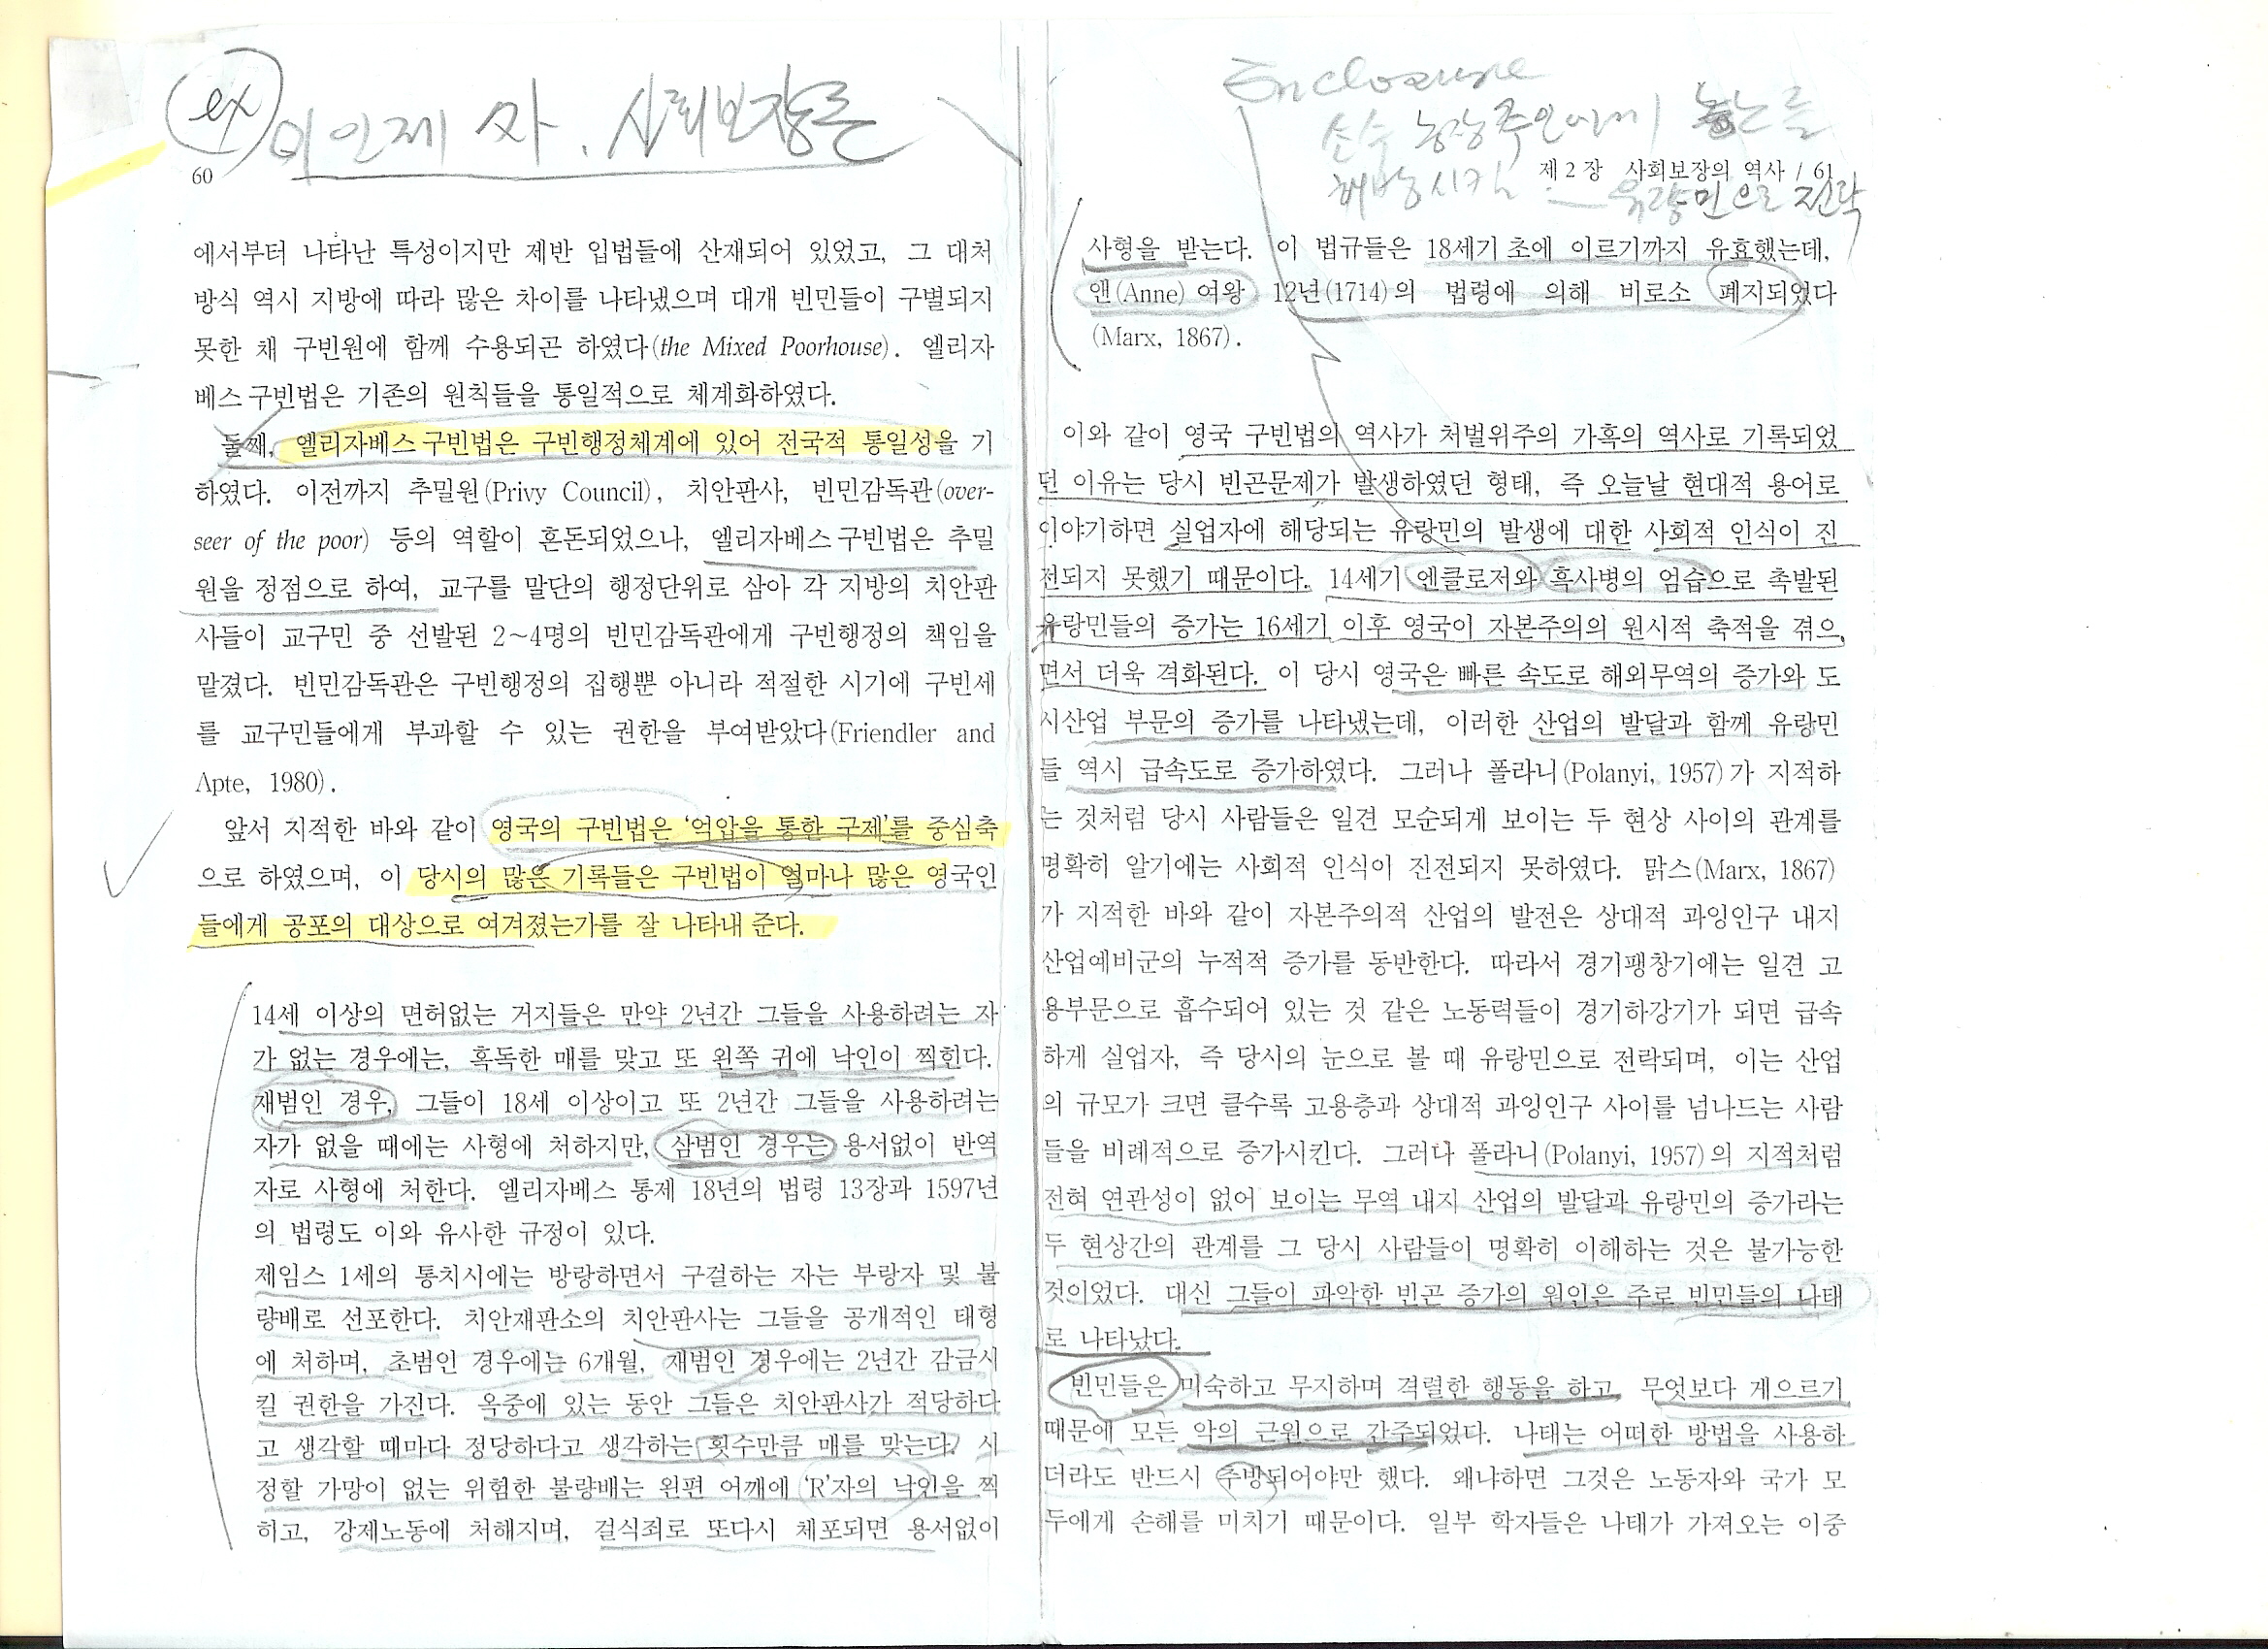 ex
이인제 자. 사회보장론
60
에서부터 나타난 특성이지만 제반 입법들에 산재되어 있었고, 그 대처
방식 역시 지방에 따라 많은 차이를 나타냈으며 대개 빈민들이 구별되지
못한 채 구빈원에 함께 수용되곤 하였다(the Mixed Poorhouse). 엘리자
베스구빈법은 기존의 원칙들을 통일적으로 체계화하였다.
둘째, 엘리자베스구빈법은 구빈행정체계에 있어 전국적 통일성을 기
하였다. 이전까지 추밀원(Privy Council), 치안판사, 빈민감독관(over-
seer of the poor) 등의 역할이 혼돈되었으나, 엘리자베스구빈법은 추밀
원을 정점으로 하여, 교구를 말단의 행정단위로 삼아 각 지방의 치안판
사들이 교구민 중 선발된 2~4명의 빈민감독관에게 구빈행정의 책임을
맡겼다. 빈민감독관은 구빈행정의 집행뿐 아니라 적절한 시기에 구빈세
를 교구민들에게 부과할 수 있는 권한을 부여받았다(Friendler and
Apte, 1980).
앞서 지적한 바와 같이 영국의 구빈법은 ‘억압을 통한 구제’를 중심축
으로 하였으며, 이 당시의 많은 기록들은 구빈법이 얼마나 많은 영국인
들에게 공포의 대상으로 여겨졌는가를 잘 나타내 준다.
14세 이상의 면허없는 거지들은 만약 2년간 그들을 사용하려는 자
가 없는 경우에는, 혹독한 매를 맞고 또 왼쪽 귀에 낙인이 찍힌다.
재범인 경우, 그들이 18세 이상이고 또 2년간 그들을 사용하려는
자가 없을 때에는 사형에 처하지만, 삼범인 경우는 용서없이 반역
자로 사형에 처한다. 엘리자베스 통제 18년의 법령 13장과 1597년
의 법령도 이와 유사한 규정이 있다.
제임스 1세의 통치시에는 방랑하면서 구걸하는 자는 부랑자 및 불
량배로 선포한다. 치안재판소의 치안판사는 그들을 공개적인 태형
에 처하며, 초범인 경우에는 6개월, 재범인 경우에는 2년간 감금시
킬 권한을 가진다. 옥중에 있는 동안 그들은 치안판사가 적당하다
고 생각할 때마다 정당하다고 생각하는 횟수만큼 매를 맞는다. 시
정할 가망이 없는 위험한 불량배는 왼편 어깨에 ‘R’자의 낙인을 찍
히고, 강제노동에 처해지며, 걸식죄로 또다시 체포되면 용서없이
Enclosure
소수 농장주인에게 농노를
해방시킴 → 유랑민으로 전락
제2장 사회보장의 역사 / 61
사형을 받는다. 이 법규들은 18세기 초에 이르기까지 유효했는데,
앤(Anne) 여왕 12년(1714)의 법령에 의해 비로소 폐지되었다
(Marx, 1867).
이와 같이 영국 구빈법의 역사가 처벌위주의 가혹의 역사로 기록되었
던 이유는 당시 빈곤문제가 발생하였던 형태, 즉 오늘날 현대적 용어로
이야기하면 실업자에 해당되는 유랑민의 발생에 대한 사회적 인식이 진
전되지 못했기 때문이다. 14세기 엔클로저와 흑사병의 엄습으로 촉발된
유랑민들의 증가는 16세기 이후 영국이 자본주의의 원시적 축적을 겪으
면서 더욱 격화된다. 이 당시 영국은 빠른 속도로 해외무역의 증가와 도
시산업 부문의 증가를 나타냈는데, 이러한 산업의 발달과 함께 유랑민
들 역시 급속도로 증가하였다. 그러나 폴라니(Polanyi, 1957)가 지적하
는 것처럼 당시 사람들은 일견 모순되게 보이는 두 현상 사이의 관계를
명확히 알기에는 사회적 인식이 진전되지 못하였다. 맑스(Marx, 1867)
가 지적한 바와 같이 자본주의적 산업의 발전은 상대적 과잉인구 내지
산업예비군의 누적적 증가를 동반한다. 따라서 경기팽창기에는 일견 고
용부문으로 흡수되어 있는 것 같은 노동력들이 경기하강기가 되면 급속
하게 실업자, 즉 당시의 눈으로 볼 때 유랑민으로 전락되며, 이는 산업
의 규모가 크면 클수록 고용층과 상대적 과잉인구 사이를 넘나드는 사람
들을 비례적으로 증가시킨다. 그러나 폴라니(Polanyi, 1957)의 지적처럼
전혀 연관성이 없어 보이는 무역 내지 산업의 발달과 유랑민의 증가라는
두 현상간의 관계를 그 당시 사람들이 명확히 이해하는 것은 불가능한
것이었다. 대신 그들이 파악한 빈곤 증가의 원인은 주로 빈민들의 나태
로 나타났다.
빈민들은 미숙하고 무지하며 격렬한 행동을 하고, 무엇보다 게으르기
때문에 모든 악의 근원으로 간주되었다. 나태는 어떠한 방법을 사용하
더라도 반드시 추방되어야만 했다. 왜냐하면 그것은 노동자와 국가 모
두에게 손해를 미치기 때문이다. 일부 학자들은 나태가 가져오는 이중